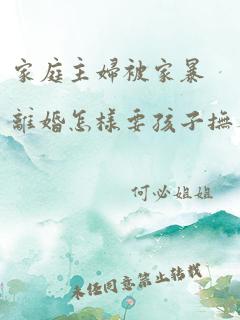 家庭主婦被家暴
離婚怎樣要孩子撫
何必姐姐
未经同意禁止转载